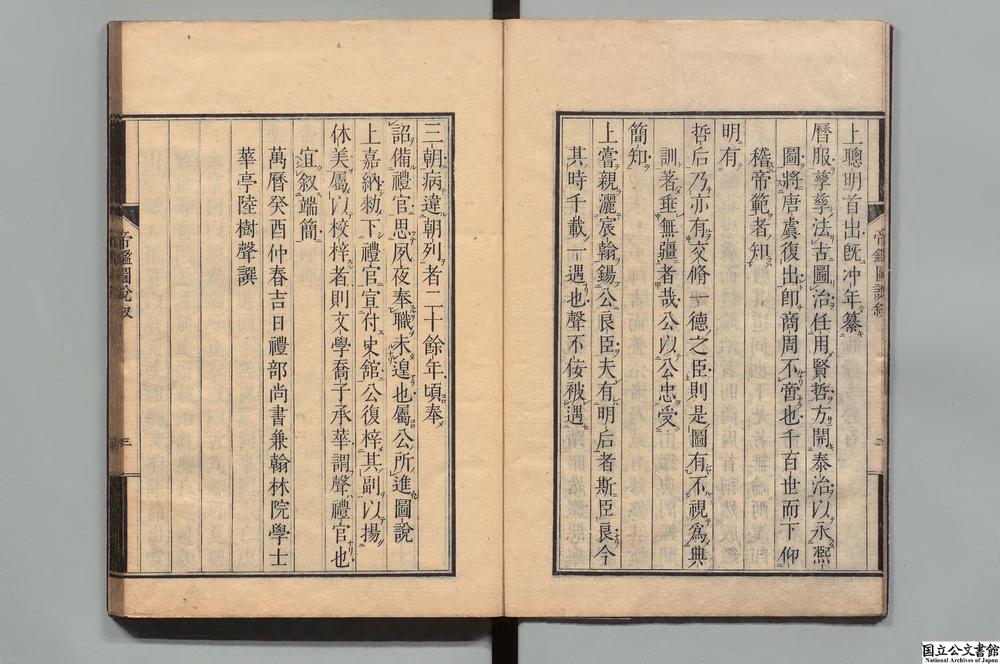 上聰明首出旣冲年纂
曆服孳孳法古圖治任用賢哲方開泰治以永熙
圖將唐虞復出卽商周不啻也千百世而下仰
稽帝範者知
明有
哲后乃亦有交脩一德之臣則是圖有不視爲典
訓著垂無疆者哉公以公忠受
簡知
上嘗親灑宸翰錫公良臣夫有明后者斯臣良今
其時千載一遇也聲不佞被遇
三朝病違朝列者二十餘年頃奉
詔備禮官思夙夜奉職未遑也屬公所進圖說
上嘉納勑下禮官宣付史舘公復梓其副以揚
休美屬以校梓者則文學喬子承華謂聲禮官也
宜叙端簡
萬曆癸酉仲春吉日禮部尚書兼翰林院學士
華亭陸樹聲譔
帝鑑圖說叙
三
国立公文書館
National Archives of Japan